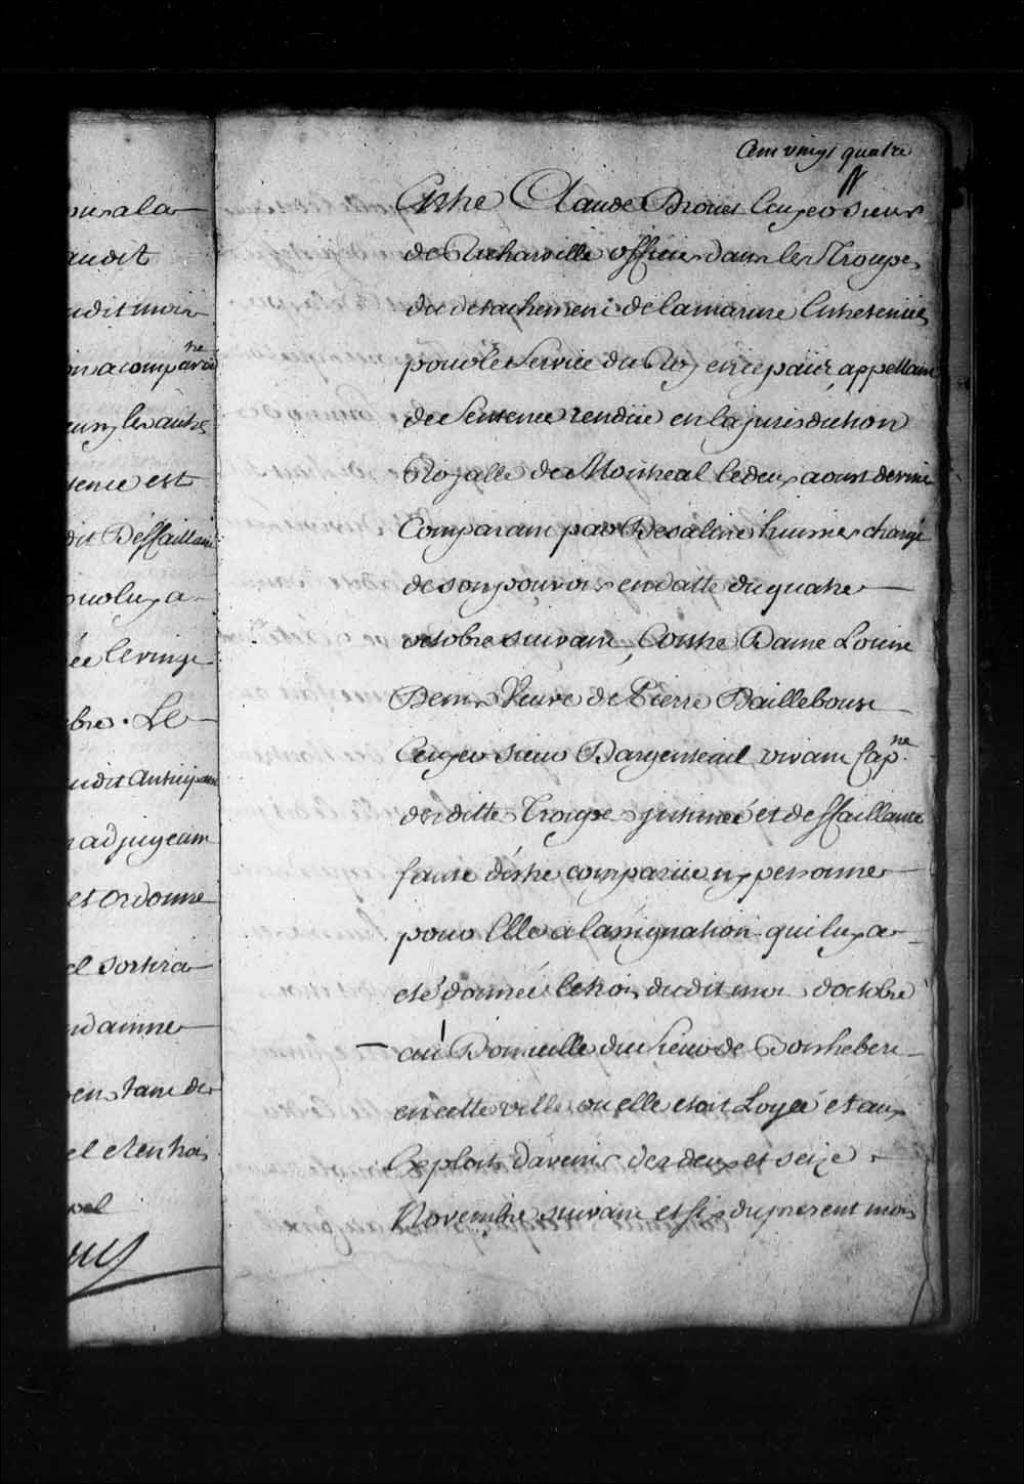 Cent vingt quatre
ou a la
audit
udit mois
on a comparu ne
eurs, les autres
tence est
dit Deffaillant
luy a
ée le vingt
bre. Le
udit anticipant
adjugeant
et ordonne
el sortira
ndamne
en tant de
el et en trois
oel
Entre Claude Drouet Ecuyer sieur
de Richarville officier dans les Troupes
du detachement de la marine Entretenues
pour le Service du Roy en ce païs, appellant
de Sentence rendüe en la jurisdiction
Royalle de Montreal le deux aoust dernier
Comparant par Desaline huissier chargé
de son pouvoir en datte du quatre
octobre suivant, Contre Dame Louise
Denis Veuve de Pierre Dailleboust
Ecuyer sieur Dargenteuil vivant Capne
desditte Troupes intimée et deffaillante
faute d'estre comparüe ny personne
pour Elle a l'assignation qui luy a
eté donnée le trois dudit mois d'octobre
au Domicille du Sieur de Portneuf
en cette ville ou elle etoit Logée et aux
Exploits d'avenir des deux et seize
Novembre suivant et six du present mois